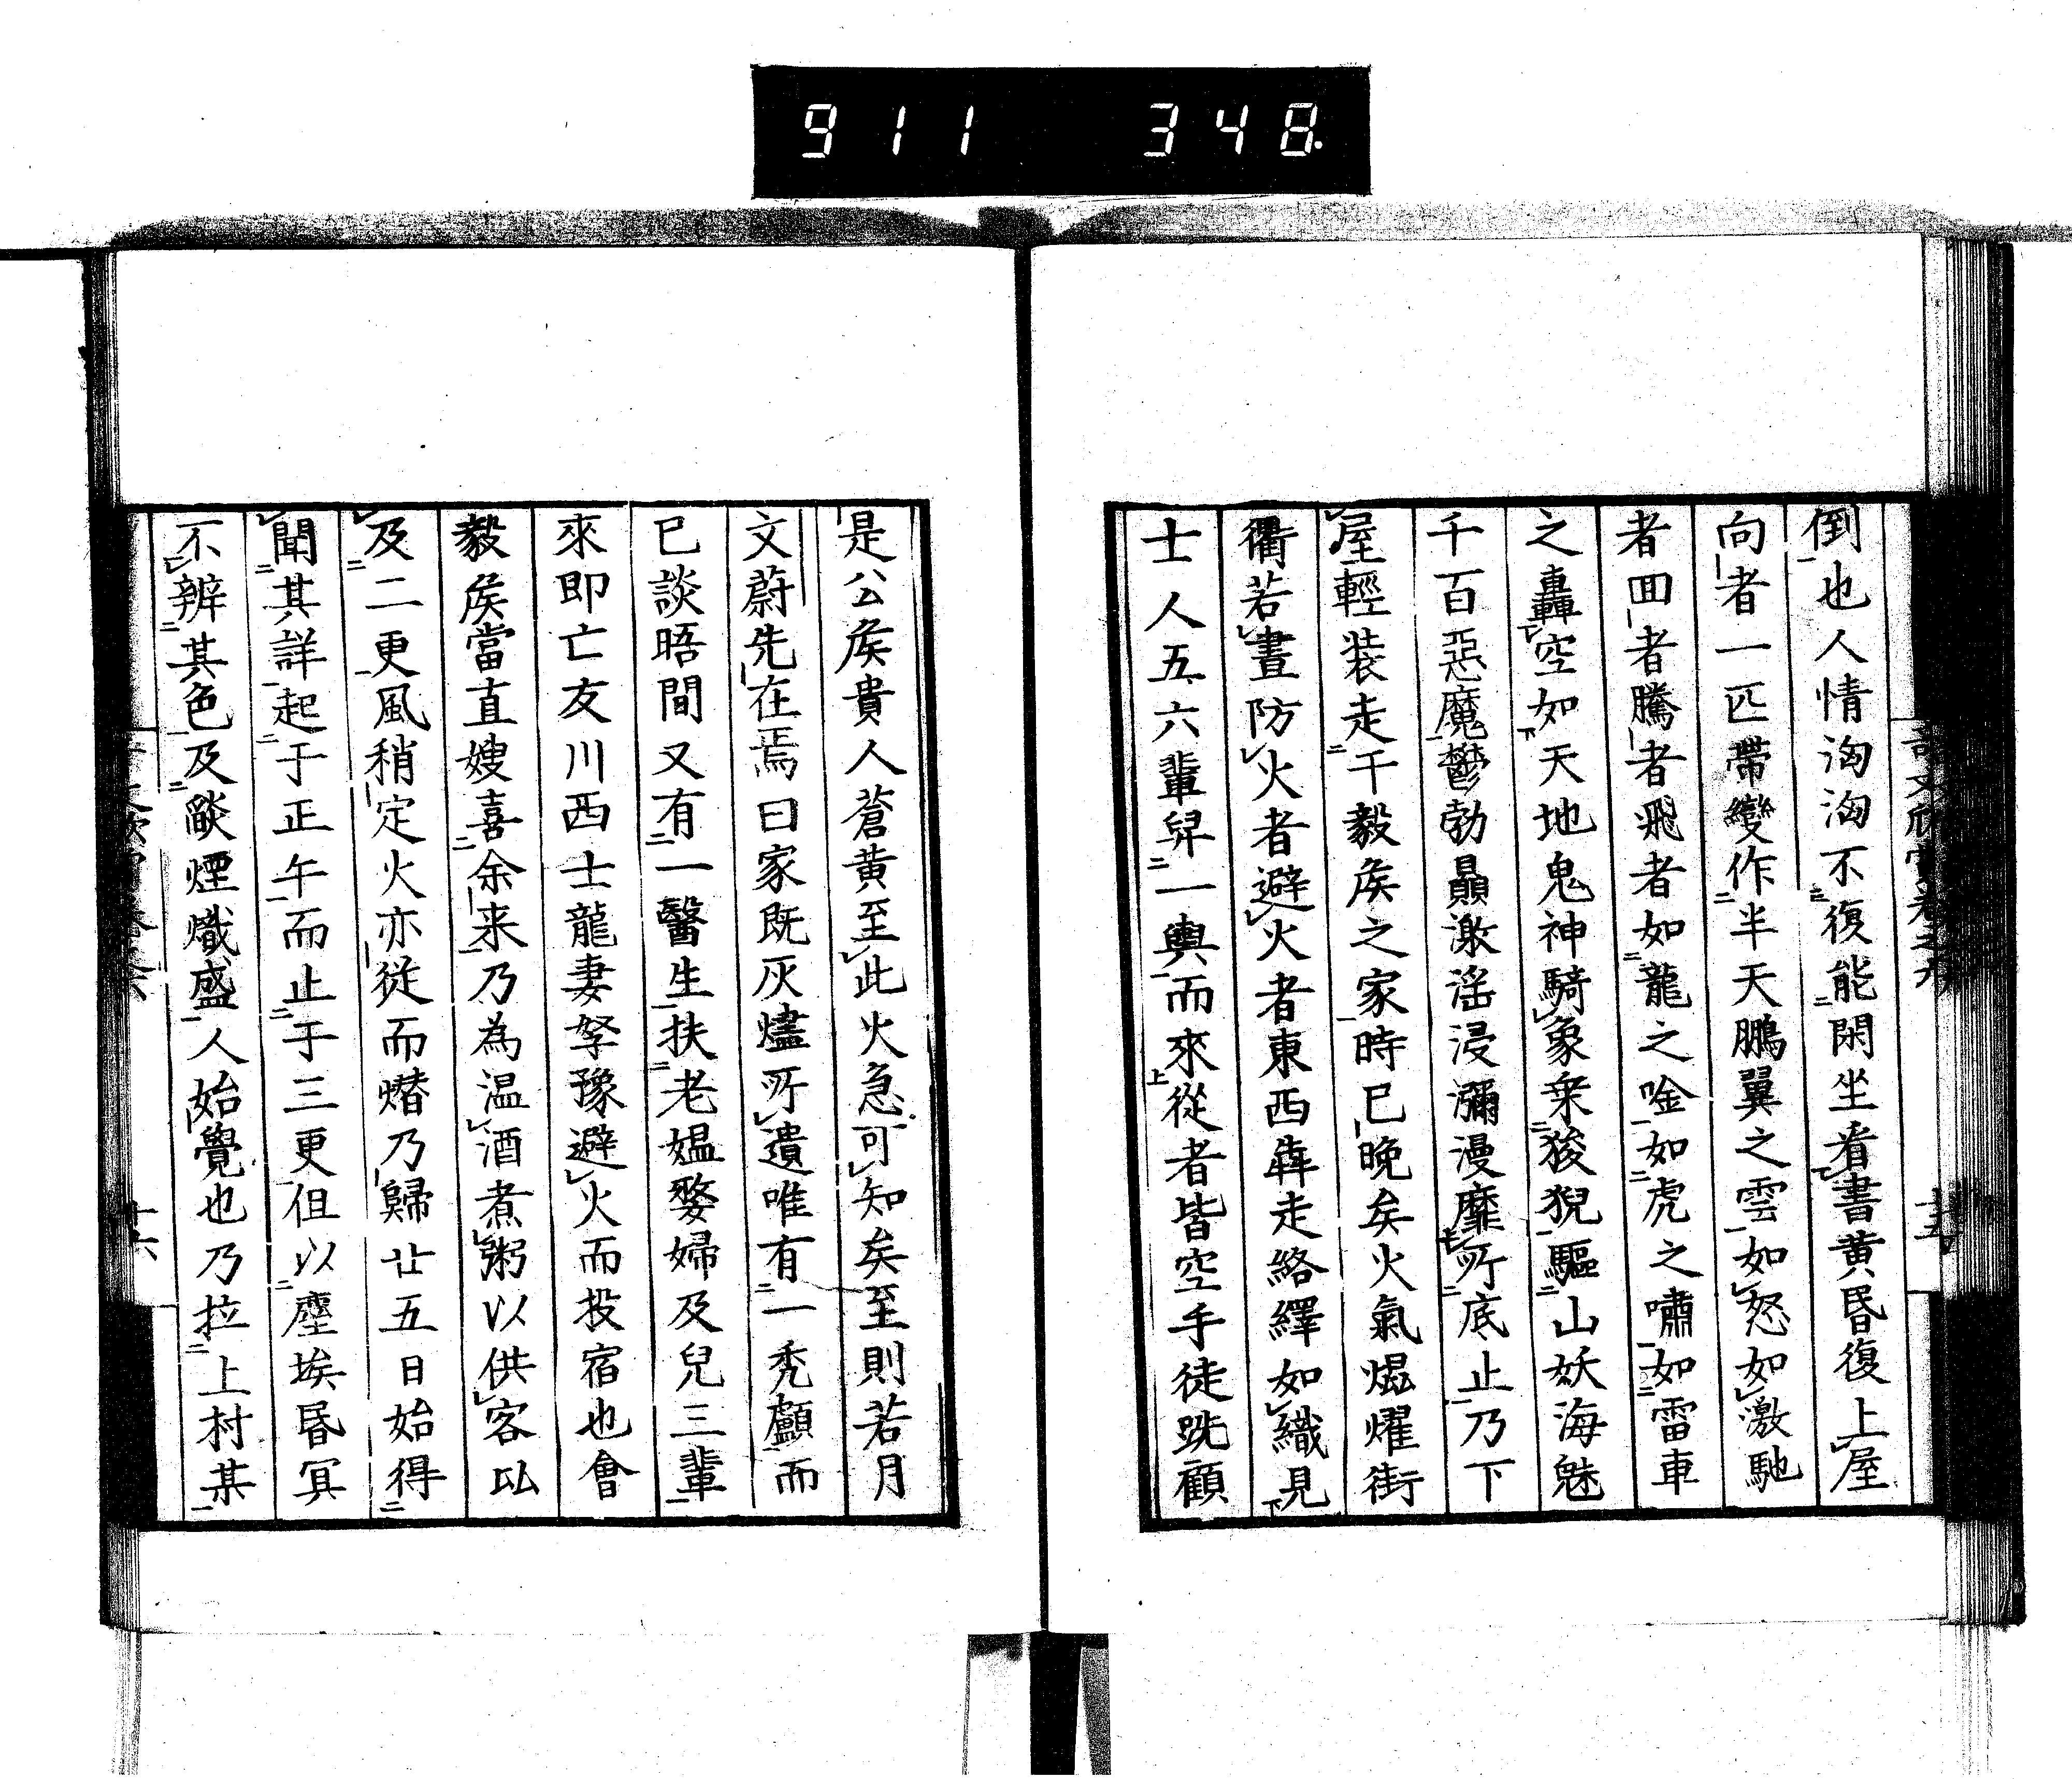 911 348.
倒也人情洶洶不復能閑坐看書黄昏復上屋
向者一匹帶變作半天鵬翼之雲如怒如激馳
者回者騰者飛者如龍之唫如虎之嘯如雷車
之轟空如天地鬼神騎象乗狻猊驅山妖海魅
千百惡魔鬱勃贔激滛浸瀰漫靡所底止乃下
屋輕装走干毅矦之家時已晩矣火氣熅燿街
衢若晝防火者避火者東西犇走絡繹如織見
士人五六輩舁一輿而來從者皆空手徒跣顧
是公矦貴人蒼黄至此火急可知矣至則若月
文蔚先在焉曰家既灰燼所遺唯有一禿顱而
已談晤間又有一醫生扶老媼婺婦及兒三輩
來即亡友川西士龍妻孥豫避火而投宿也會
毅矦當直嫂喜余来乃為温酒煮粥以供客㠯
及二更風稍定火亦從而熸乃歸廿五日始得
聞其詳起于正午而止于三更但以塵埃昏冥
不辨其色及燄煙熾盛人始覺也乃拉上村某